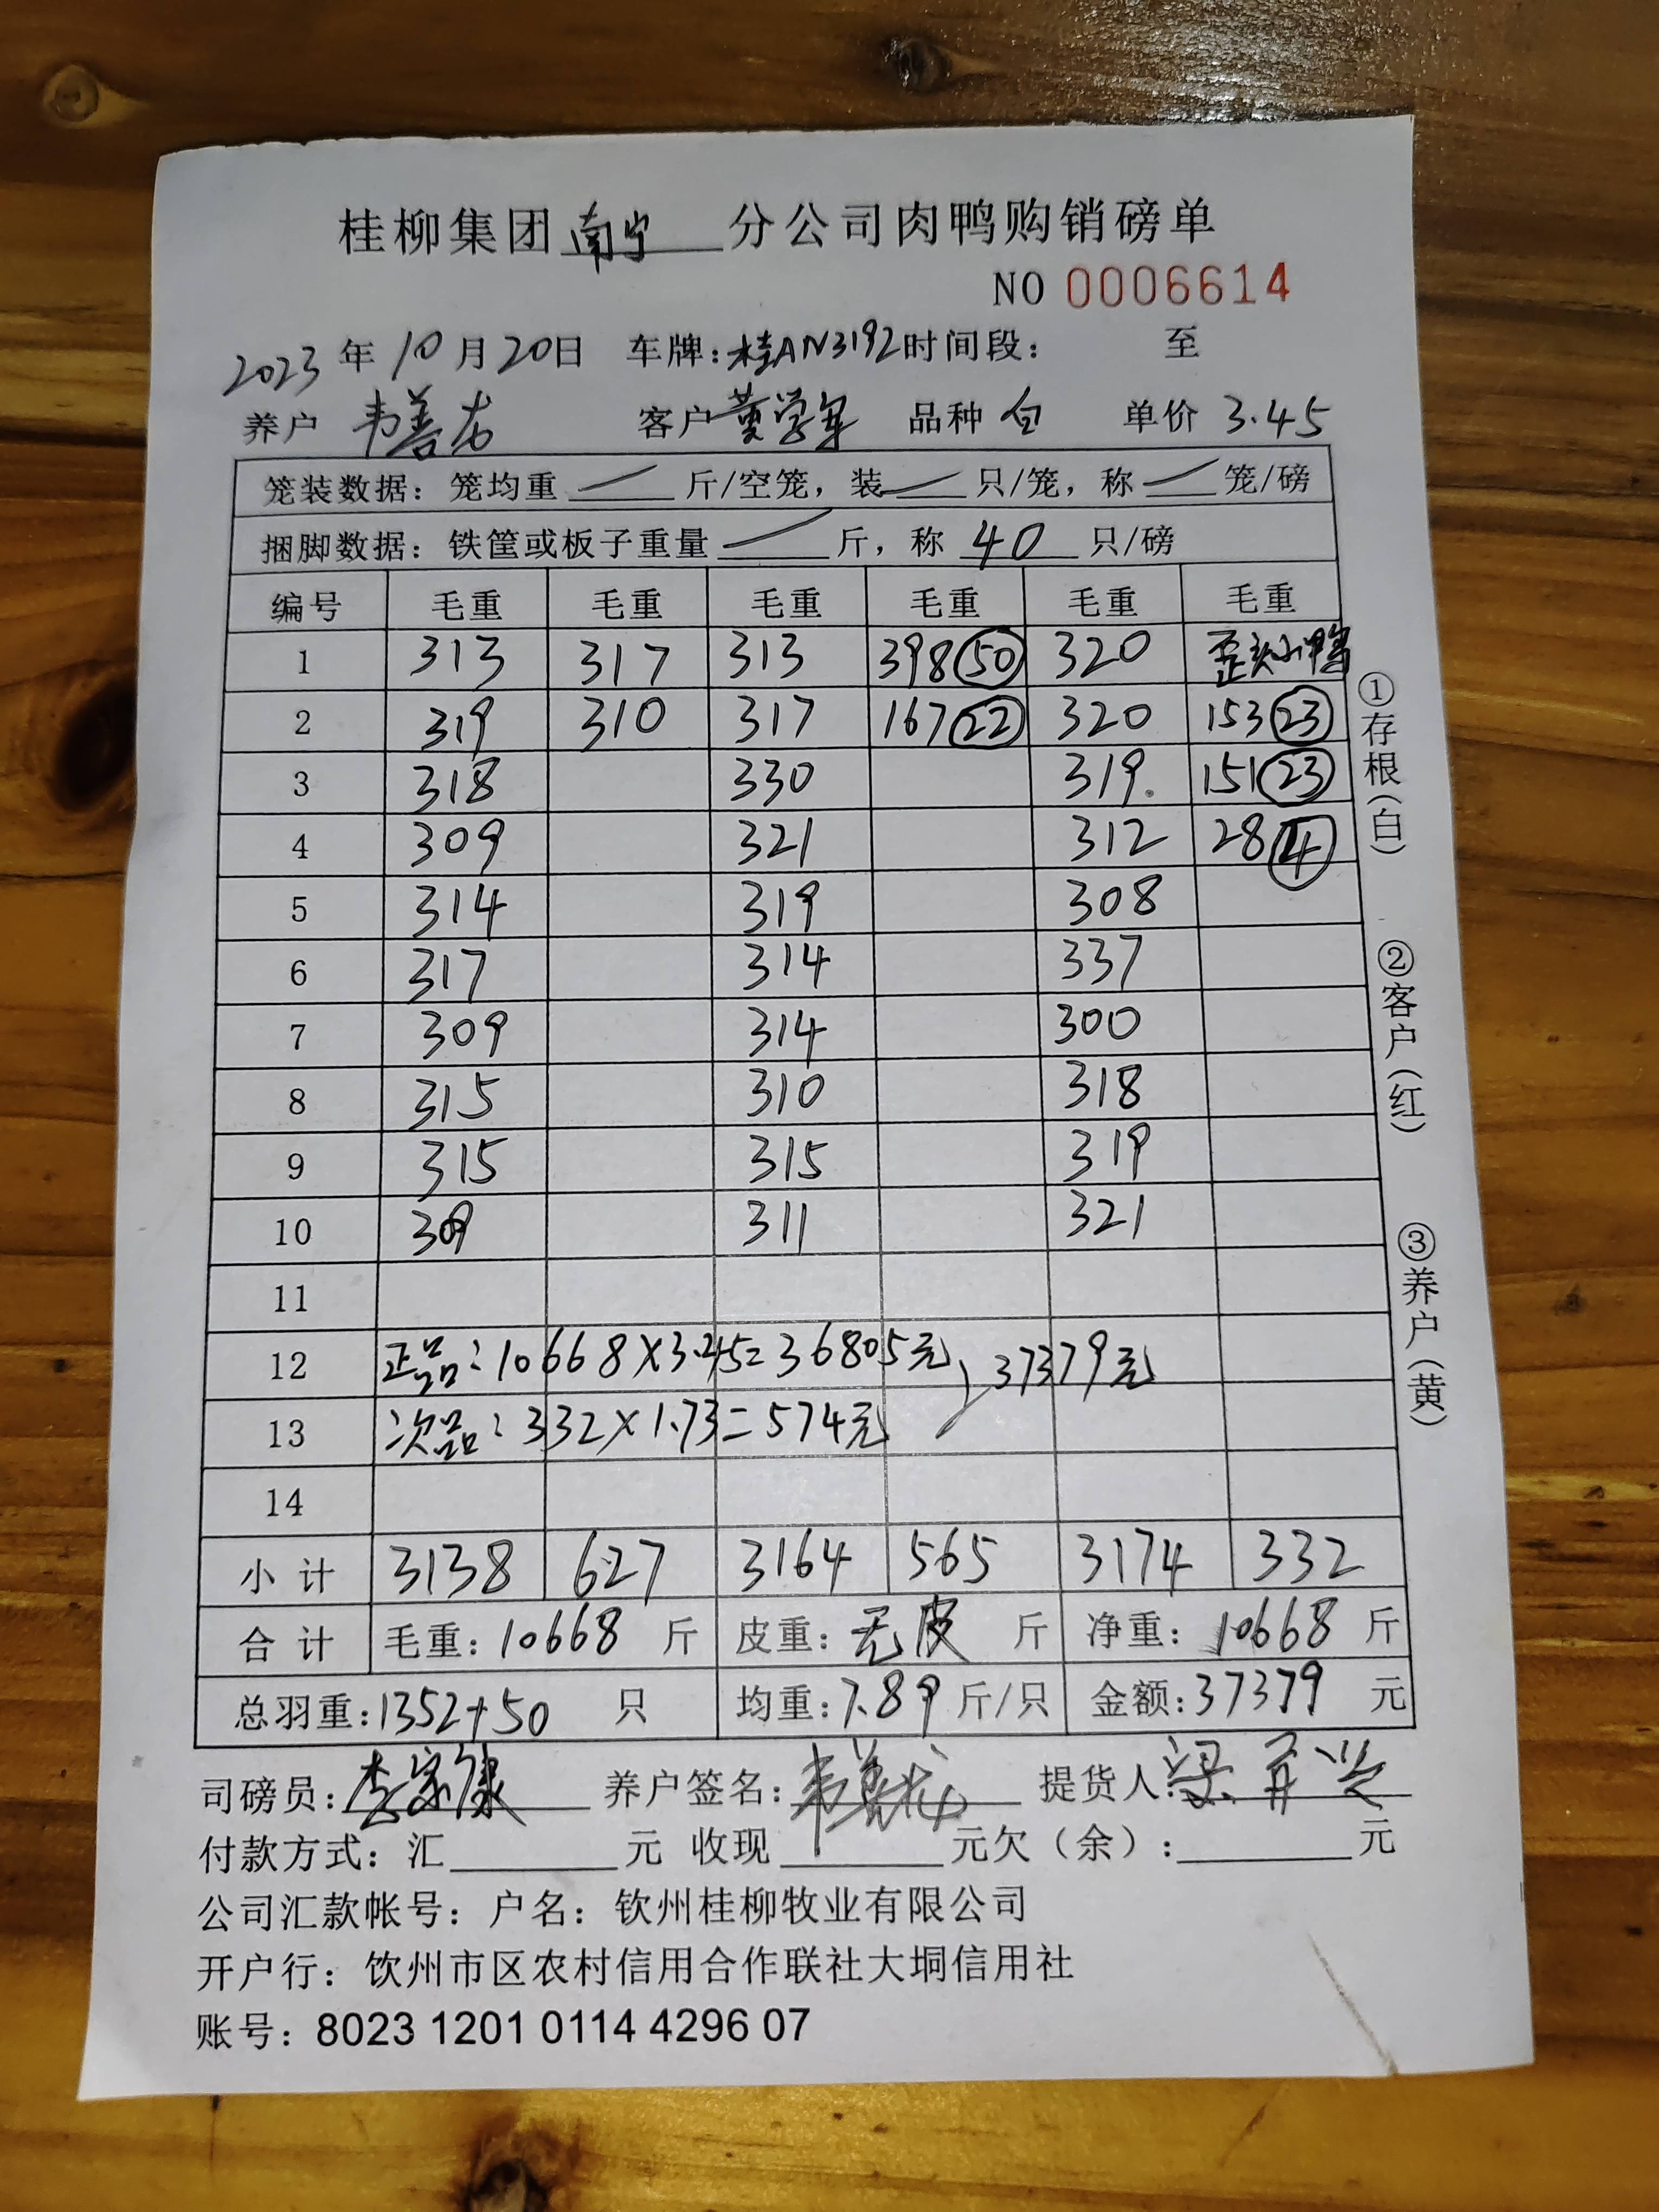 桂柳集团 南宁 分公司肉鸭购销磅单
NO 0006614
2023 年 10 月 20 日 车牌: 桂AN3192 时间段: 至
养户 韦善龙 客户 黄学军 品种 白 单价 3.45
笼装数据: 笼均重 / 斤/空笼, 装 / 只/笼, 称 / 笼/磅
捆脚数据: 铁筐或板子重量 / 斤, 称 40 只/磅
编号 毛重 毛重 毛重 毛重 毛重 毛重
1 313 317 313 398 50 320 歪头小鸭
2 319 310 317 167 22 320 153 23
3 318 330 319. 151 23
4 309 321 312 28 4
5 314 319 308
6 317 314 337
7 309 314 300
8 315 310 318
9 315 315 319
10 309 311 321
11
12 正品: 10668×3.45=36805元 37379元
13 次品: 332×1.73=574元
14
小计 3138 627 3164 565 3174 332
合计 毛重: 10668 斤 皮重: 无皮 斤 净重: 10668 斤
总羽重: 1352+50 只 均重: 7.89 斤/只 金额: 37379 元
司磅员: 李家康 养户签名: 韦善龙 提货人: 梁
付款方式: 汇 元 收现 元欠(余): 元
公司汇款帐号: 户名: 钦州桂柳牧业有限公司
开户行: 饮州市区农村信用合作联社大垌信用社
账号: 8023 1201 0114 4296 07
①存根(白)
②客户(红)
③养户(黄)